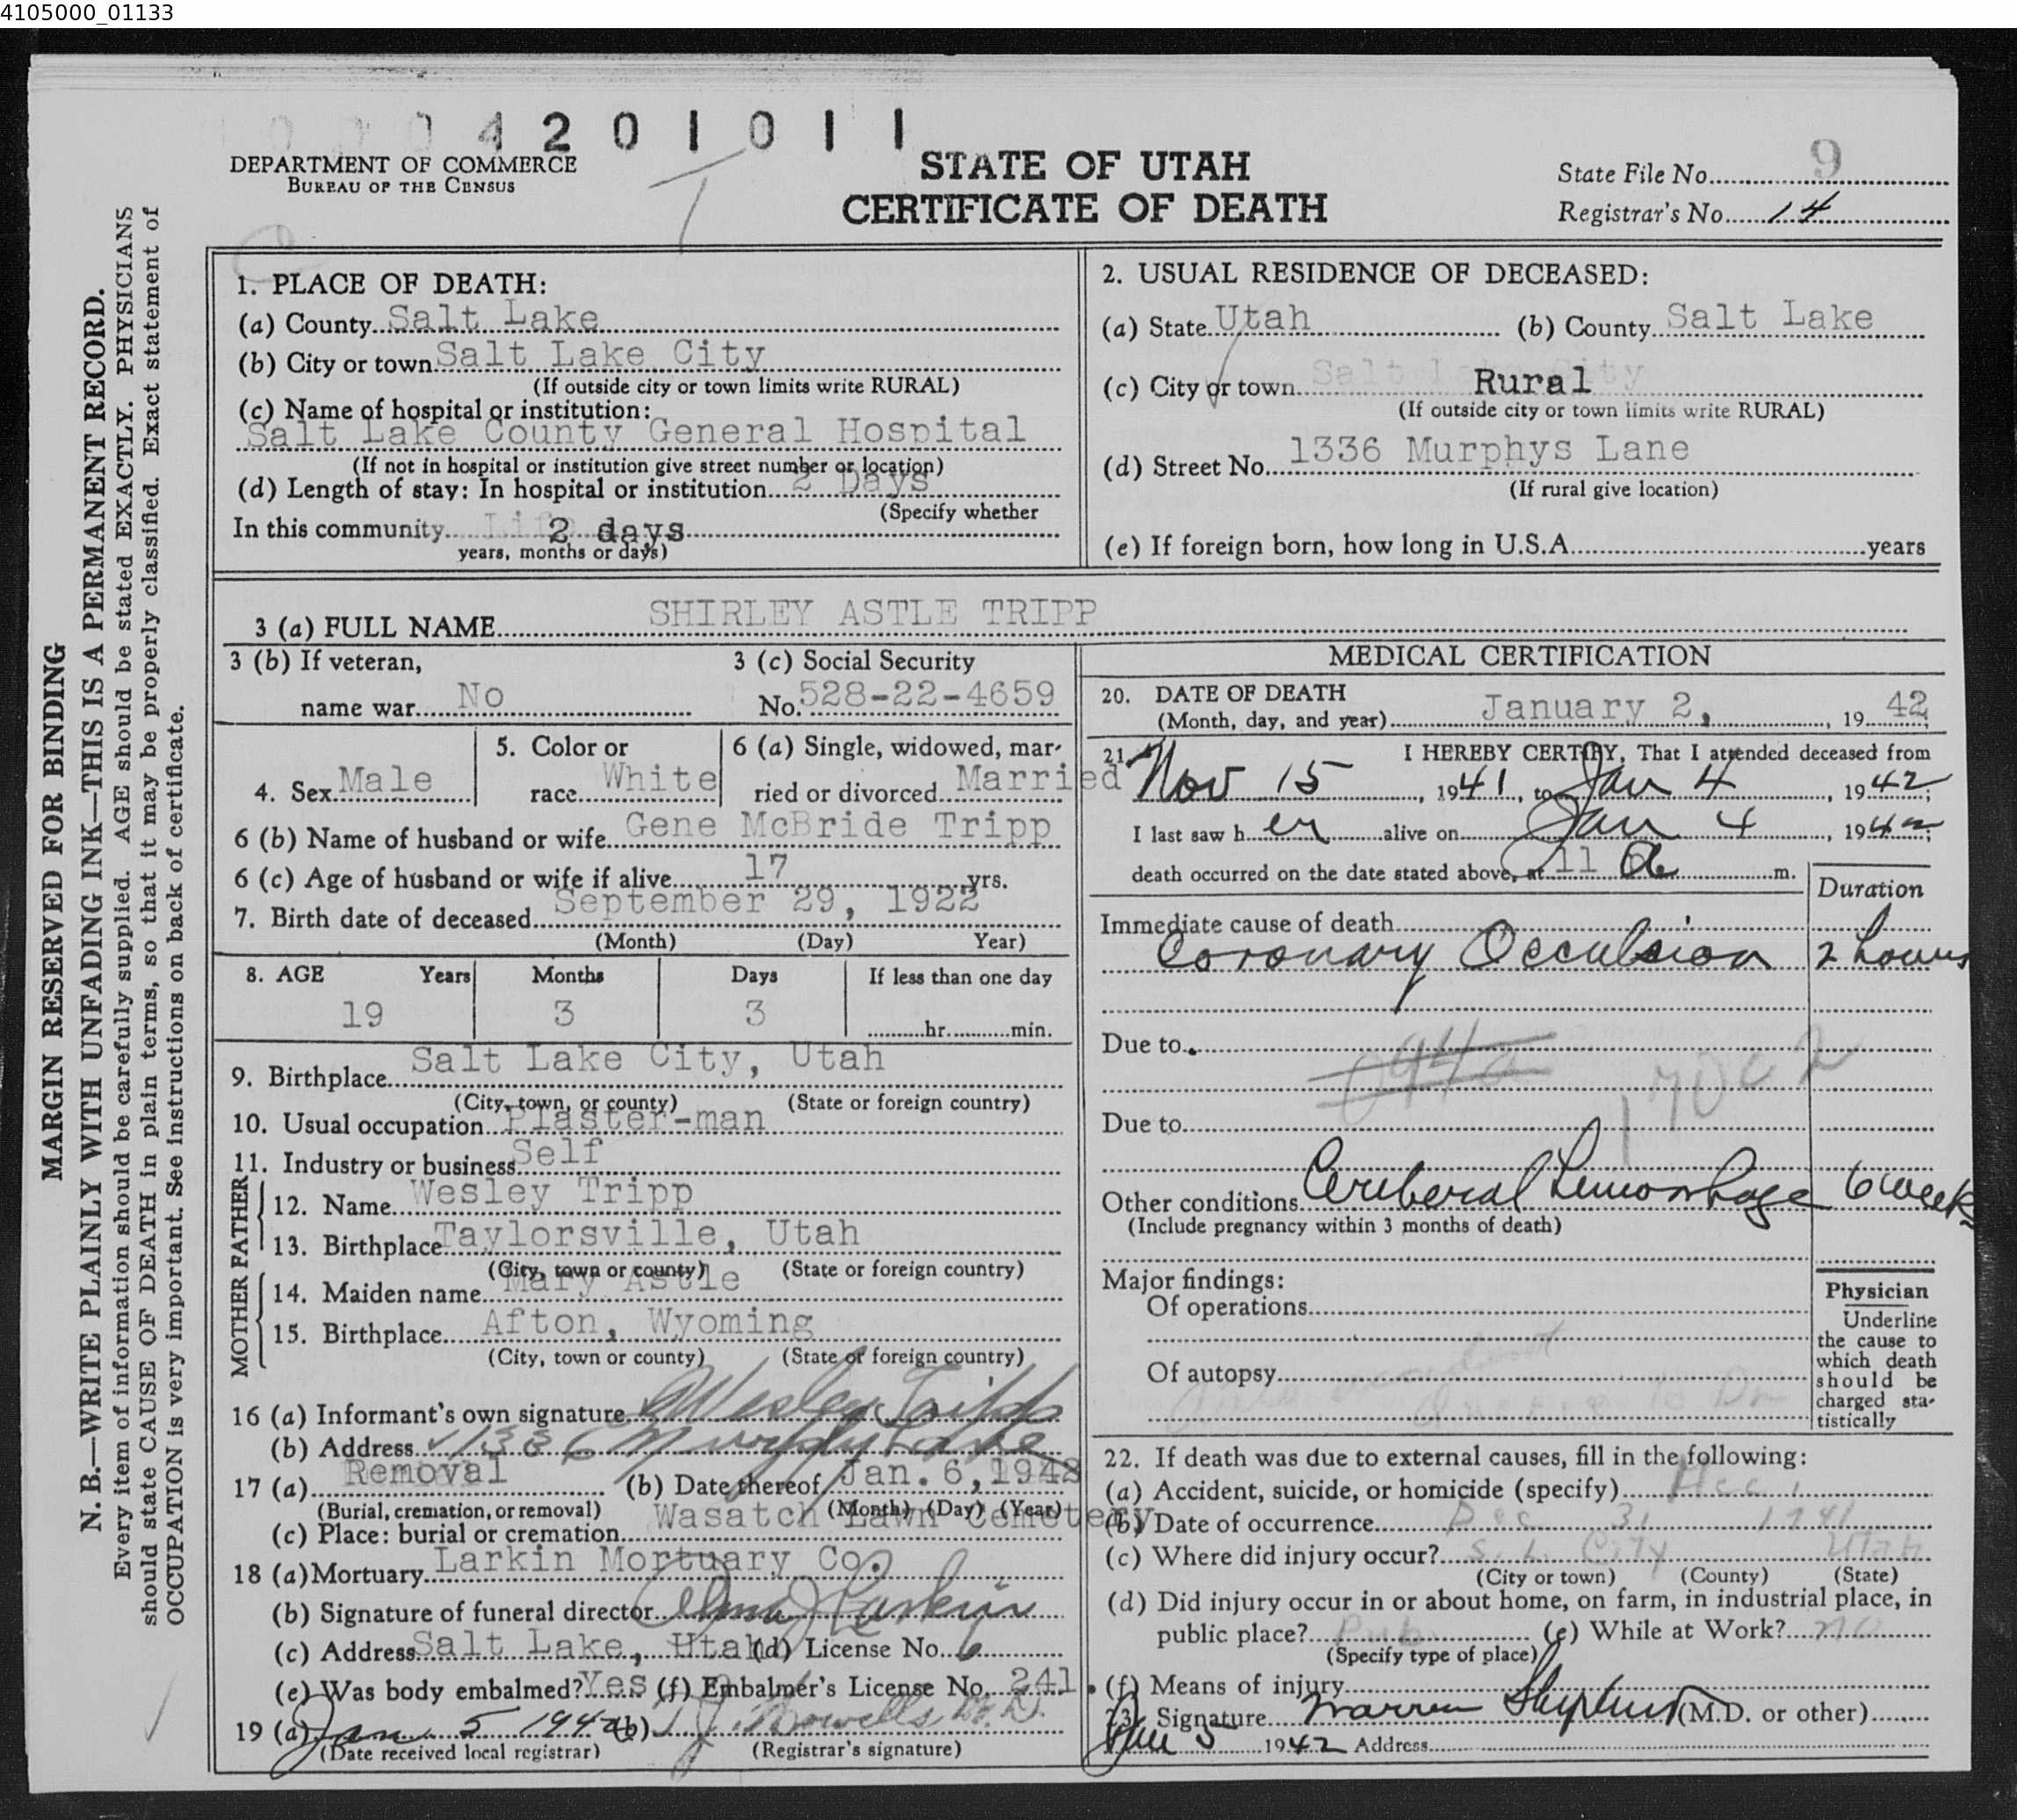 4105000_01133
4 2 0 1 0 1 1
DEPARTMENT OF COMMERCE
BUREAU OF THE CENSUS
STATE OF UTAH
CERTIFICATE OF DEATH
State File No. 9
Registrar's No. 14
MARGIN RESERVED FOR BINDING
N. B.—WRITE PLAINLY WITH UNFADING INK—THIS IS A PERMANENT RECORD.
Every item of information should be carefully supplied. AGE should be stated EXACTLY. PHYSICIANS
should state CAUSE OF DEATH in plain terms, so that it may be properly classified. Exact statement of
OCCUPATION is very important. See instructions on back of certificate.
1. PLACE OF DEATH:
(a) County Salt Lake
(b) City or town Salt Lake City
(If outside city or town limits write RURAL)
(c) Name of hospital or institution:
Salt Lake County General Hospital
(If not in hospital or institution give street number or location)
(d) Length of stay: In hospital or institution 2 Days
(Specify whether
In this community Life 2 days
years, months or days)
2. USUAL RESIDENCE OF DECEASED:
(a) State Utah (b) County Salt Lake
(c) City or town Salt Lake City Rural
(If outside city or town limits write RURAL)
(d) Street No. 1336 Murphys Lane
(If rural give location)
(e) If foreign born, how long in U.S.A. years
3 (a) FULL NAME SHIRLEY ASTLE TRIPP
3 (b) If veteran,
name war No
3 (c) Social Security
No. 528-22-4659
4. Sex Male
5. Color or
race White
6 (a) Single, widowed, mar-
ried or divorced Married
6 (b) Name of husband or wife Gene McBride Tripp
6 (c) Age of husband or wife if alive 17 yrs.
7. Birth date of deceased September 29, 1922
(Month) (Day) Year)
8. AGE Years Months Days If less than one day
19 3 3 hr. min.
9. Birthplace Salt Lake City, Utah
(City, town, or county) (State or foreign country)
10. Usual occupation Plaster-man
11. Industry or business Self
FATHER
12. Name Wesley Tripp
13. Birthplace Taylorsville, Utah
(City, town or county) (State or foreign country)
MOTHER
14. Maiden name Mary Astle
15. Birthplace Afton, Wyoming
(City, town or county) (State or foreign country)
16 (a) Informant's own signature Wesley Tripp
(b) Address 1336 Murphy Lane
17 (a) Removal (b) Date thereof Jan. 6, 1942
(Burial, cremation, or removal) (Month) (Day) (Year)
(c) Place: burial or cremation Wasatch Lawn Cemetery
18 (a) Mortuary Larkin Mortuary Co.
(b) Signature of funeral director Larkin
(c) Address Salt Lake, Utah (d) License No. 6
(e) Was body embalmed? Yes (f) Embalmer's License No. 241
19 (a) Jan. 5 1942 (b) Howells M.D.
(Date received local registrar) (Registrar's signature)
MEDICAL CERTIFICATION
20. DATE OF DEATH
(Month, day, and year) January 2, , 19 42
21. I HEREBY CERTIFY, That I attended deceased from
Nov 15 , 1941, to Jan 4 , 1942;
I last saw her alive on Jan 4 , 1942;
death occurred on the date stated above, at 11 a m.
Duration
Immediate cause of death
Coronary Occulsion 2 hours
Due to
094a 170c 2
Due to
Other conditions Cereberal Hemorrhage 6 weeks
(Include pregnancy within 3 months of death)
Major findings:
Of operations
Of autopsy
Physician
Underline
the cause to
which death
should be
charged sta-
tistically
22. If death was due to external causes, fill in the following:
(a) Accident, suicide, or homicide (specify) Acc.
(b) Date of occurrence Dec 31 1941
(c) Where did injury occur? S. L. City Utah
(City or town) (County) (State)
(d) Did injury occur in or about home, on farm, in industrial place, in
public place? Pub. (e) While at Work? no
(Specify type of place)
(f) Means of injury
23. Signature Warren Shepherd (M.D. or other)
Jan 5 1942 Address